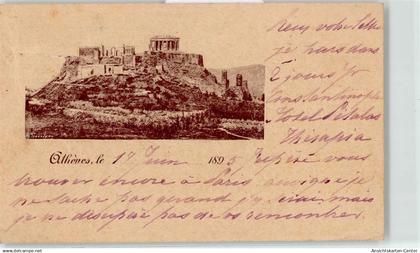 Reçu votre lettre
je pars dans
2 jours pr
Constantinople
Hotel Petalas
Thérapia
Athènes, le 17 Juin 1895
vous
trouver encore à Paris quoique je
ne sache pas quand j'y irai mais
je ne désespère pas de vs rencontrer.
Ansichtskarten-Center